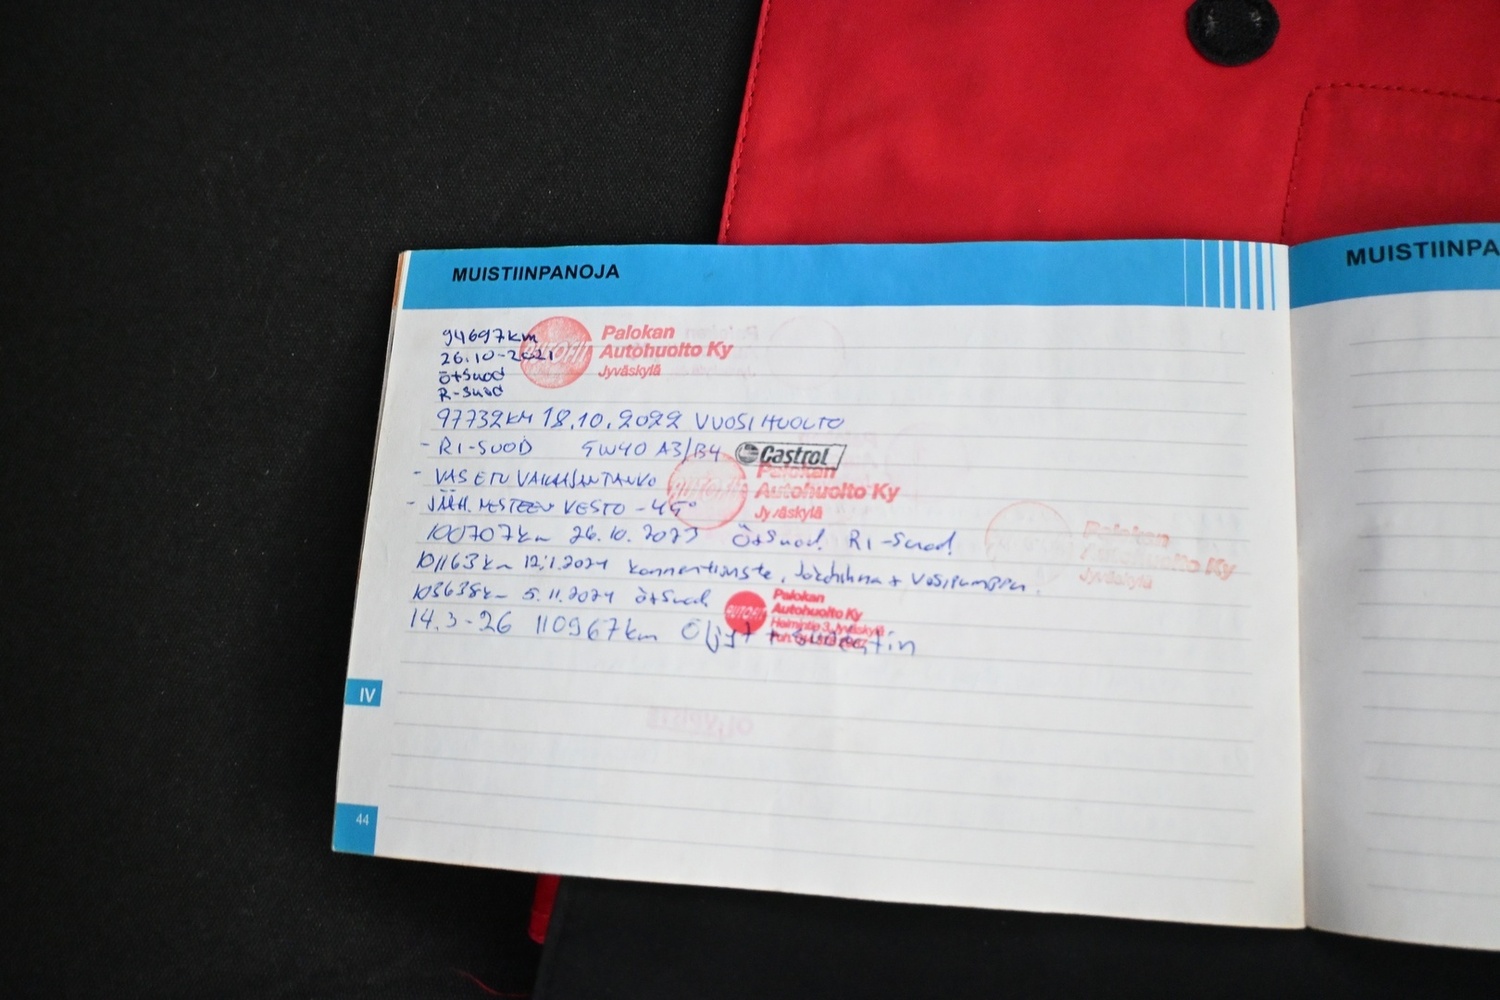 MUISTIINPANOJA
MUISTIINPA
94697km
26.10-2021
Ö+Suod
R-Suod
AUTOFIT
Palokan
Autohuolto Ky
Jyväskylä
97732KM 18.10.2022 VUOSIHUOLTO
- RI-SUOD 5W40 A3/B4 Castrol
- VAS ETU VAKAAJANTANKO
- JÄÄH. NESTEEN KESTO -45°
AUTOFIT
Palokan
Autohuolto Ky
Jyväskylä
100707km 26.10.2023 Ö+Suod. RI-Suod.
Palokan
Autohuolto Ky
Jyväskylä
101163km 12.1.2024 + Vesipumppu.
103638km 5.11.2024 ö+Suod
AUTOFIT
Palokan
Autohuolto Ky
Jyväskylä
14.3-26 110967km Öljyt + suodatin
IV
44